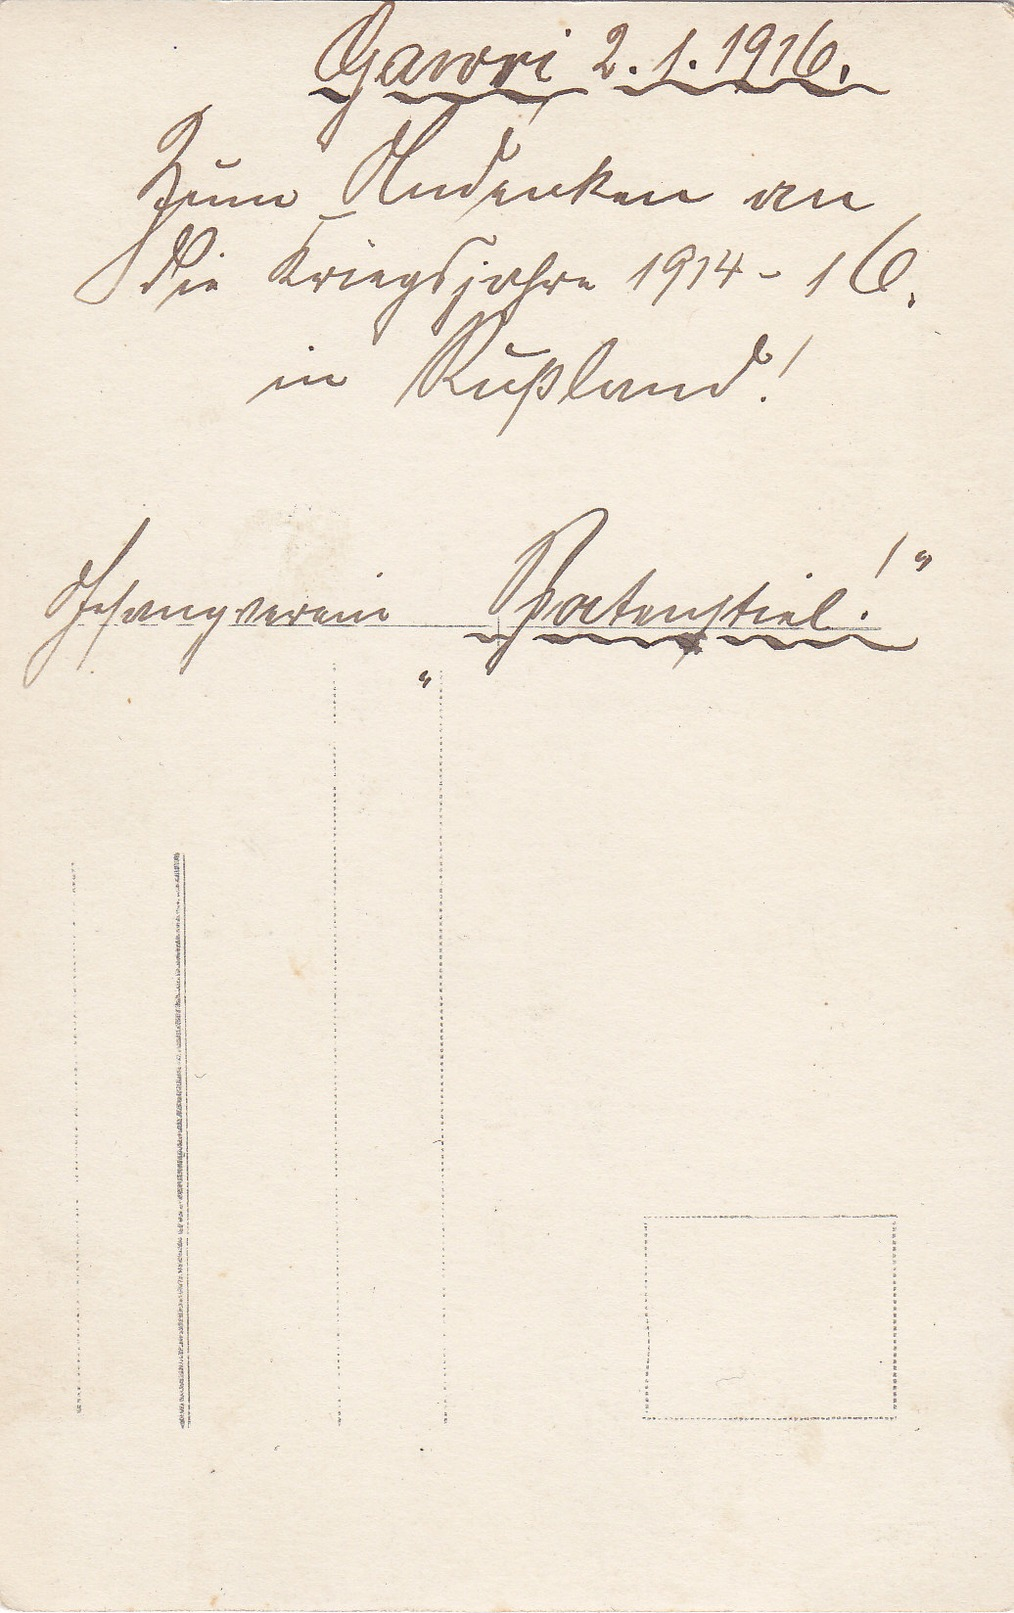 Gawri 2.1.1916.
Zum Andenken an
die Kriegsjahre 1914-16.
in Rußland!
Gesangverein „Patenstiel!“